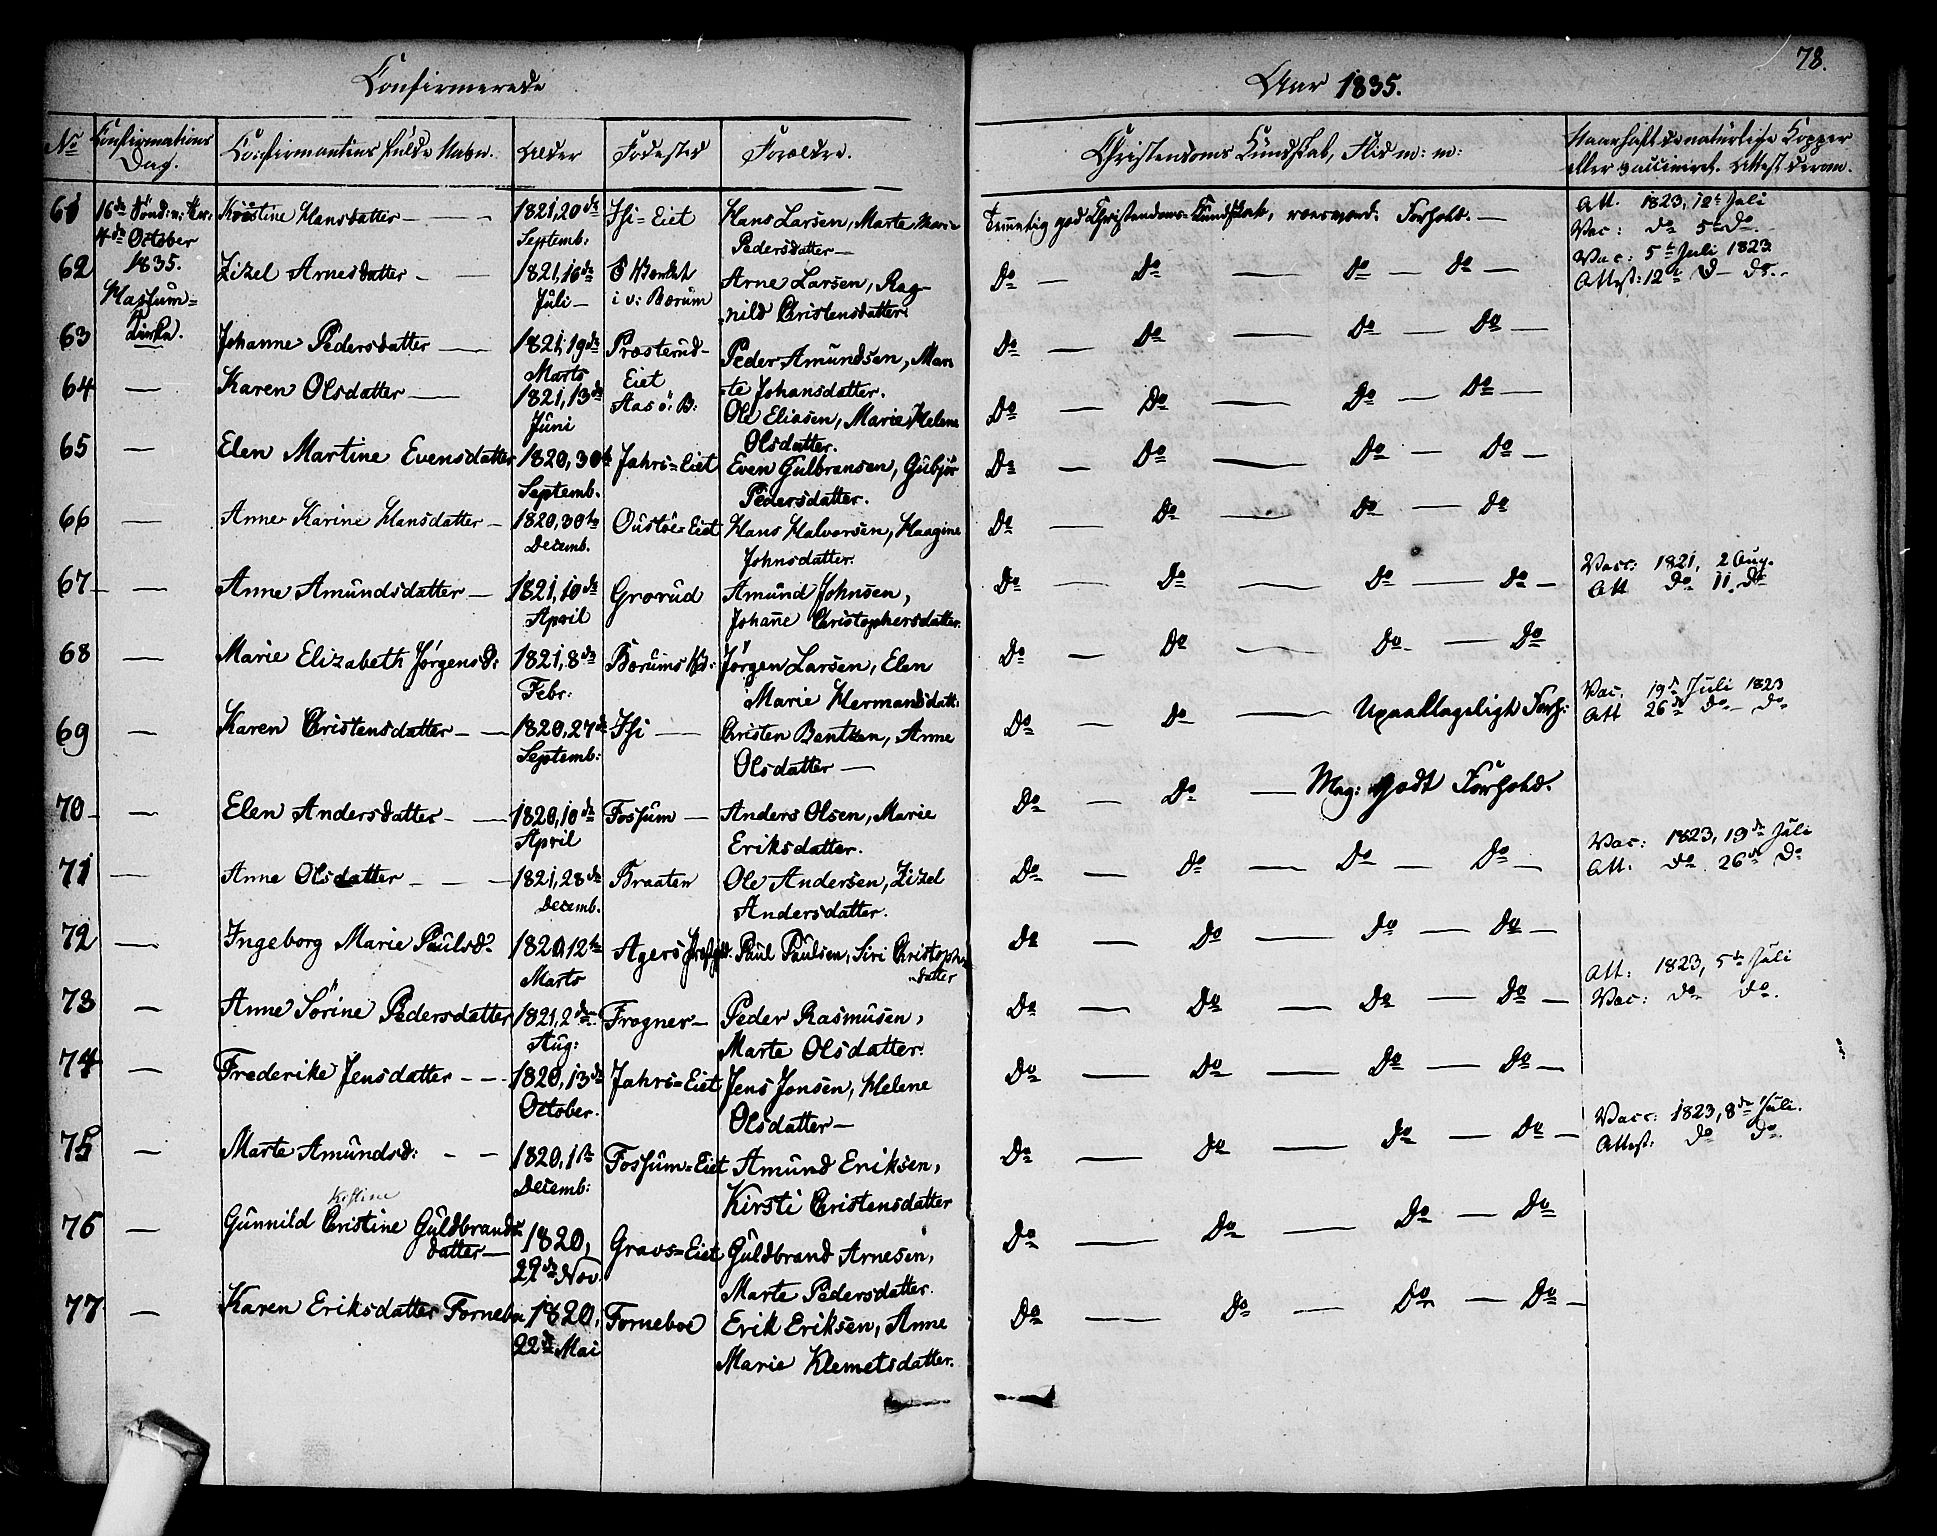 Confirmerede
Aar 1835.
78.
No Confirmations Dag. Confirmantens fulde Navn. Alder Fødested Forældre.
Christendoms Kundskab, Flid m: m:
Naar havt de naturlige Kopper
eller vaccineret. Attest derom.
61 16de Sønd: Kristine Hansdatter — — 1821, 20de Isi=Eiet Hans Larsen, Marte Marie
4de October Septemb: Pedersdatter —
Temmelig god Christendoms-Kundskab, Forhold. —
Att. 1823, 12te Juli
Vac: do 5te do.
62 1835. Zizel Arnesdatter — — 1821, 16de Arne Larsen, Rag-
Juli — i v: Bærum nild Christensdatter.
Do — Do — Do — Do —
Vac: 5te Juli 1823
Attest: 12te d— do.
63 Johanne Pedersdatter — 1821, 19de Præsterud- Peder Amundsen, Mar
Marts Eiet te Johansdatter.
Do — Do — Do — Do —
64 — Karen Olsdatter — 1821, 13de Aas ö: B: Ole Eliasen, Marie Helene
Juni Olsdatter.
Do — Do — Do — Do —
65 — Elen Martine Evensdatter 1820, 30te Jahrs=Eiet Even Gulbransen, Gubjør
Septemb. Pedersdatter.
Do — Do — Do — Do —
66 — Anne Karine Hansdatter — 1820, 30te Oustøe=Eiet Hans Halvorsen, Haagine
Decemb. Johnsdatter.
Do — Do — Do — Do
67 — Anne Amundsdatter — 1821, 10de Grorud Amund Johnsen,
April Johanne Christophersdatter.
Do — Do — Do — Do —
Vacc: 1821, 2 Aug.
Att do 11. do
68 — Marie Elizabeth Jørgensd: 1821, 8de Bærums Jørgen Larsen, Elen
Febr: Marie Hermansdatt:
Do — Do — Do — Do
69 — Karen Christensdatter — — 1820, 27de Isi — Christen Bentzen, Anne
Septemb: Olsdatter —
Do — Do — Upaaklageligt Forh:
Vac. 19de Juli 1823
Att 26de do— do
70 — Elen Andersdatter — — 1820, 10de Fossum — Anders Olsen, Marie
April Eriksdatter.
Do — Do — Meg: godt Forhold.
71 — Anne Olsdatter — — — 1821, 28de Braaten Ole Andersen, Zizel
Decemb. Andersdatter.
Do — Do — Do — Do —
Vac: 1823, 19de Juli
Att. do 26de do
72 — Ingeborg Marie Paulsd. 1820, 12te Agers Præstgjeld. Paul Paulsen, Siri Christophers
Marts datter
Do — Do — Do — Do —
73 — Anne Sørine Pedersdatter 1821, 2den Frogner — Peder Rasmusen,
Aug: Marte Olsdatter.
Do — Do — Do — Do —
Att: 1823, 5te Juli
Vac: do do.
74 — Frederike Jensdatter — — 1820, 13de Jahrs=Eiet Jens Jonsen, Helene
October. Olsdatter —
Do — Do — Do — Do —
75 — Marte Amundsd: — — 1820, 1ste Fossum=Eiet Amund Eriksen,
Decemb: Kirsti Christensdatter
Do — Do — Do — Do —
Vacc: 1823, 8de Juli.
Attest: do do
76 — Gunnild Christine Guldbrands 1820, Gravs=Eiet Guldbrand Arnesen,
datter — 22de Nov Marte Pedersdatter.
Do — Do — Do — Do
77 — Karen Eriksdatter Forneboe 1820, Forneboe Erik Eriksen, Anne
22de Mai Marie Klemetsdatter.
Do — Do — Do — Do —